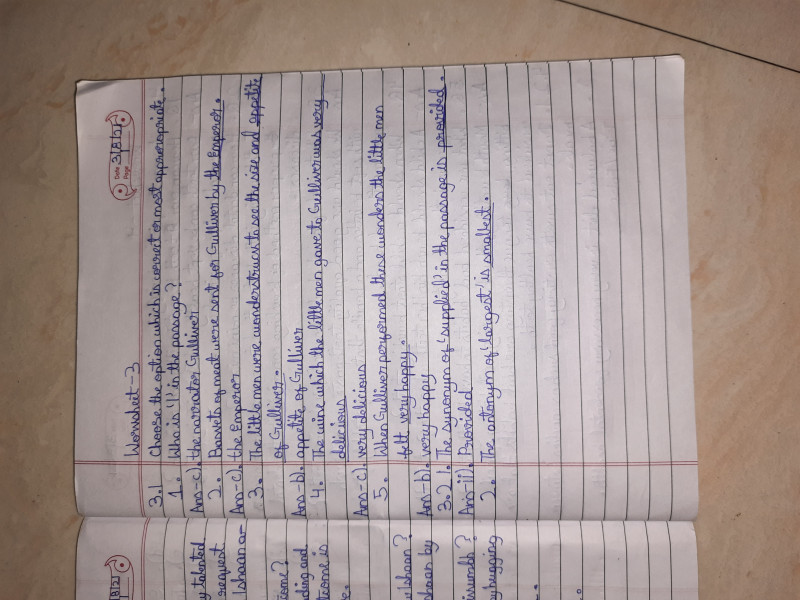 Date 3/8/21
Page
Worksheet-3
3.1 Choose the option which is correct or most appropriate.
1. Who is 'I' in the passage?
Ans-c). the narrator Gulliver
2. Baskets of meat were sent for Gulliver by the Emperor.
Ans-c). the Emperor
3. The little men were wonderstruck to see the size and appetite
of Gulliver.
Ans-b). appetite of Gulliver
4. The wine which the little men gave to Gulliver was very
delicious
Ans-c). very delicious
5. When Gulliver performed these wonders the little men
felt very happy.
Ans-b). very happy
3.2 1. The synonym of 'supplied' in the passage is provided.
Ans-ii). Provided
2. The antonym of 'largest' is smallest.
talented
request
Ishaan a-
come?
ding and
come is
Ishaan?
by
hugging